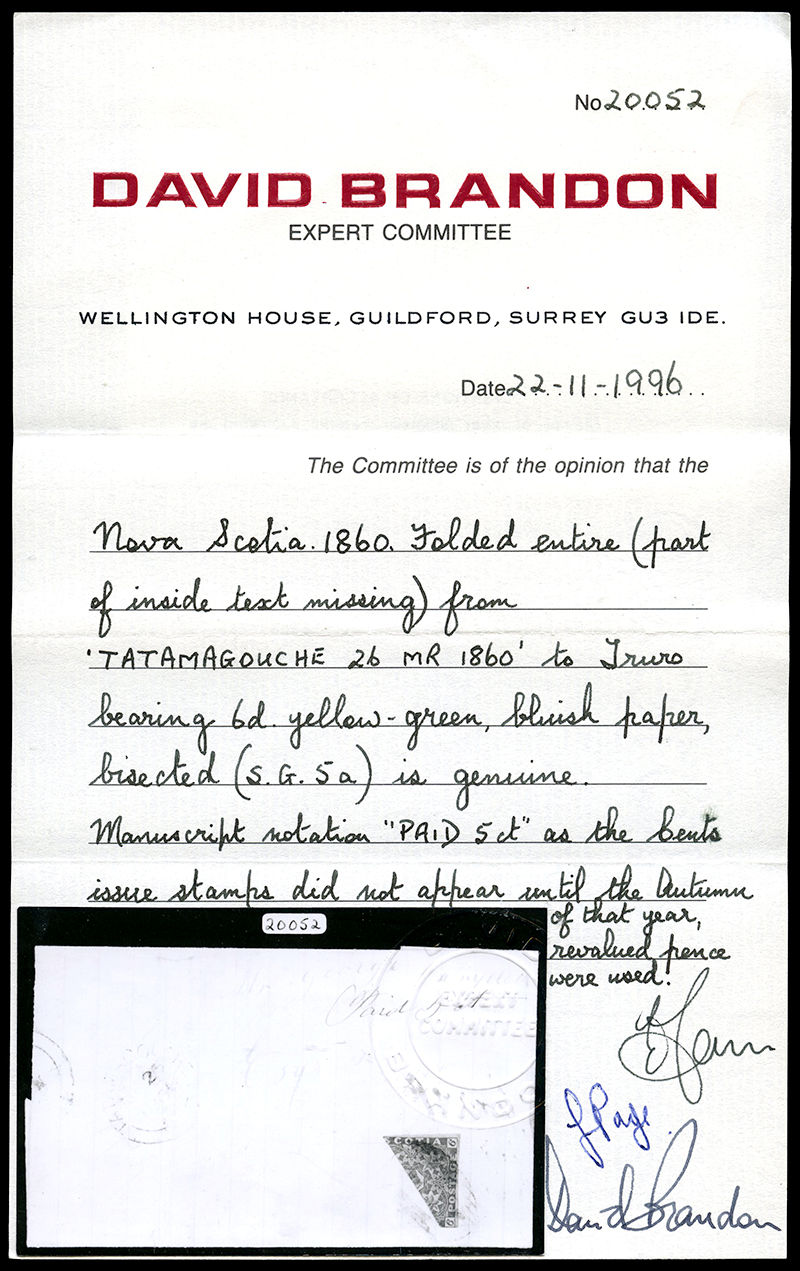 No 20052
DAVID BRANDON
EXPERT COMMITTEE
WELLINGTON HOUSE, GUILDFORD, SURREY GU3 IDE.
Date 22-11-1996
The Committee is of the opinion that the
Nova Scotia. 1860. Folded entire (part
of inside text missing) from
'TATAMAGOUCHE 26 MR 1860' to Truro
bearing 6d. yellow-green, bluish paper,
bisected (S.G. 5a) is genuine.
Manuscript notation "PAID 5ct" as the Cents
issue stamps did not appear until the Autumn
of that year,
revalued pence
were used.
20052
Paid
SCOTIA
POSTAGE
J Page
David Brandon